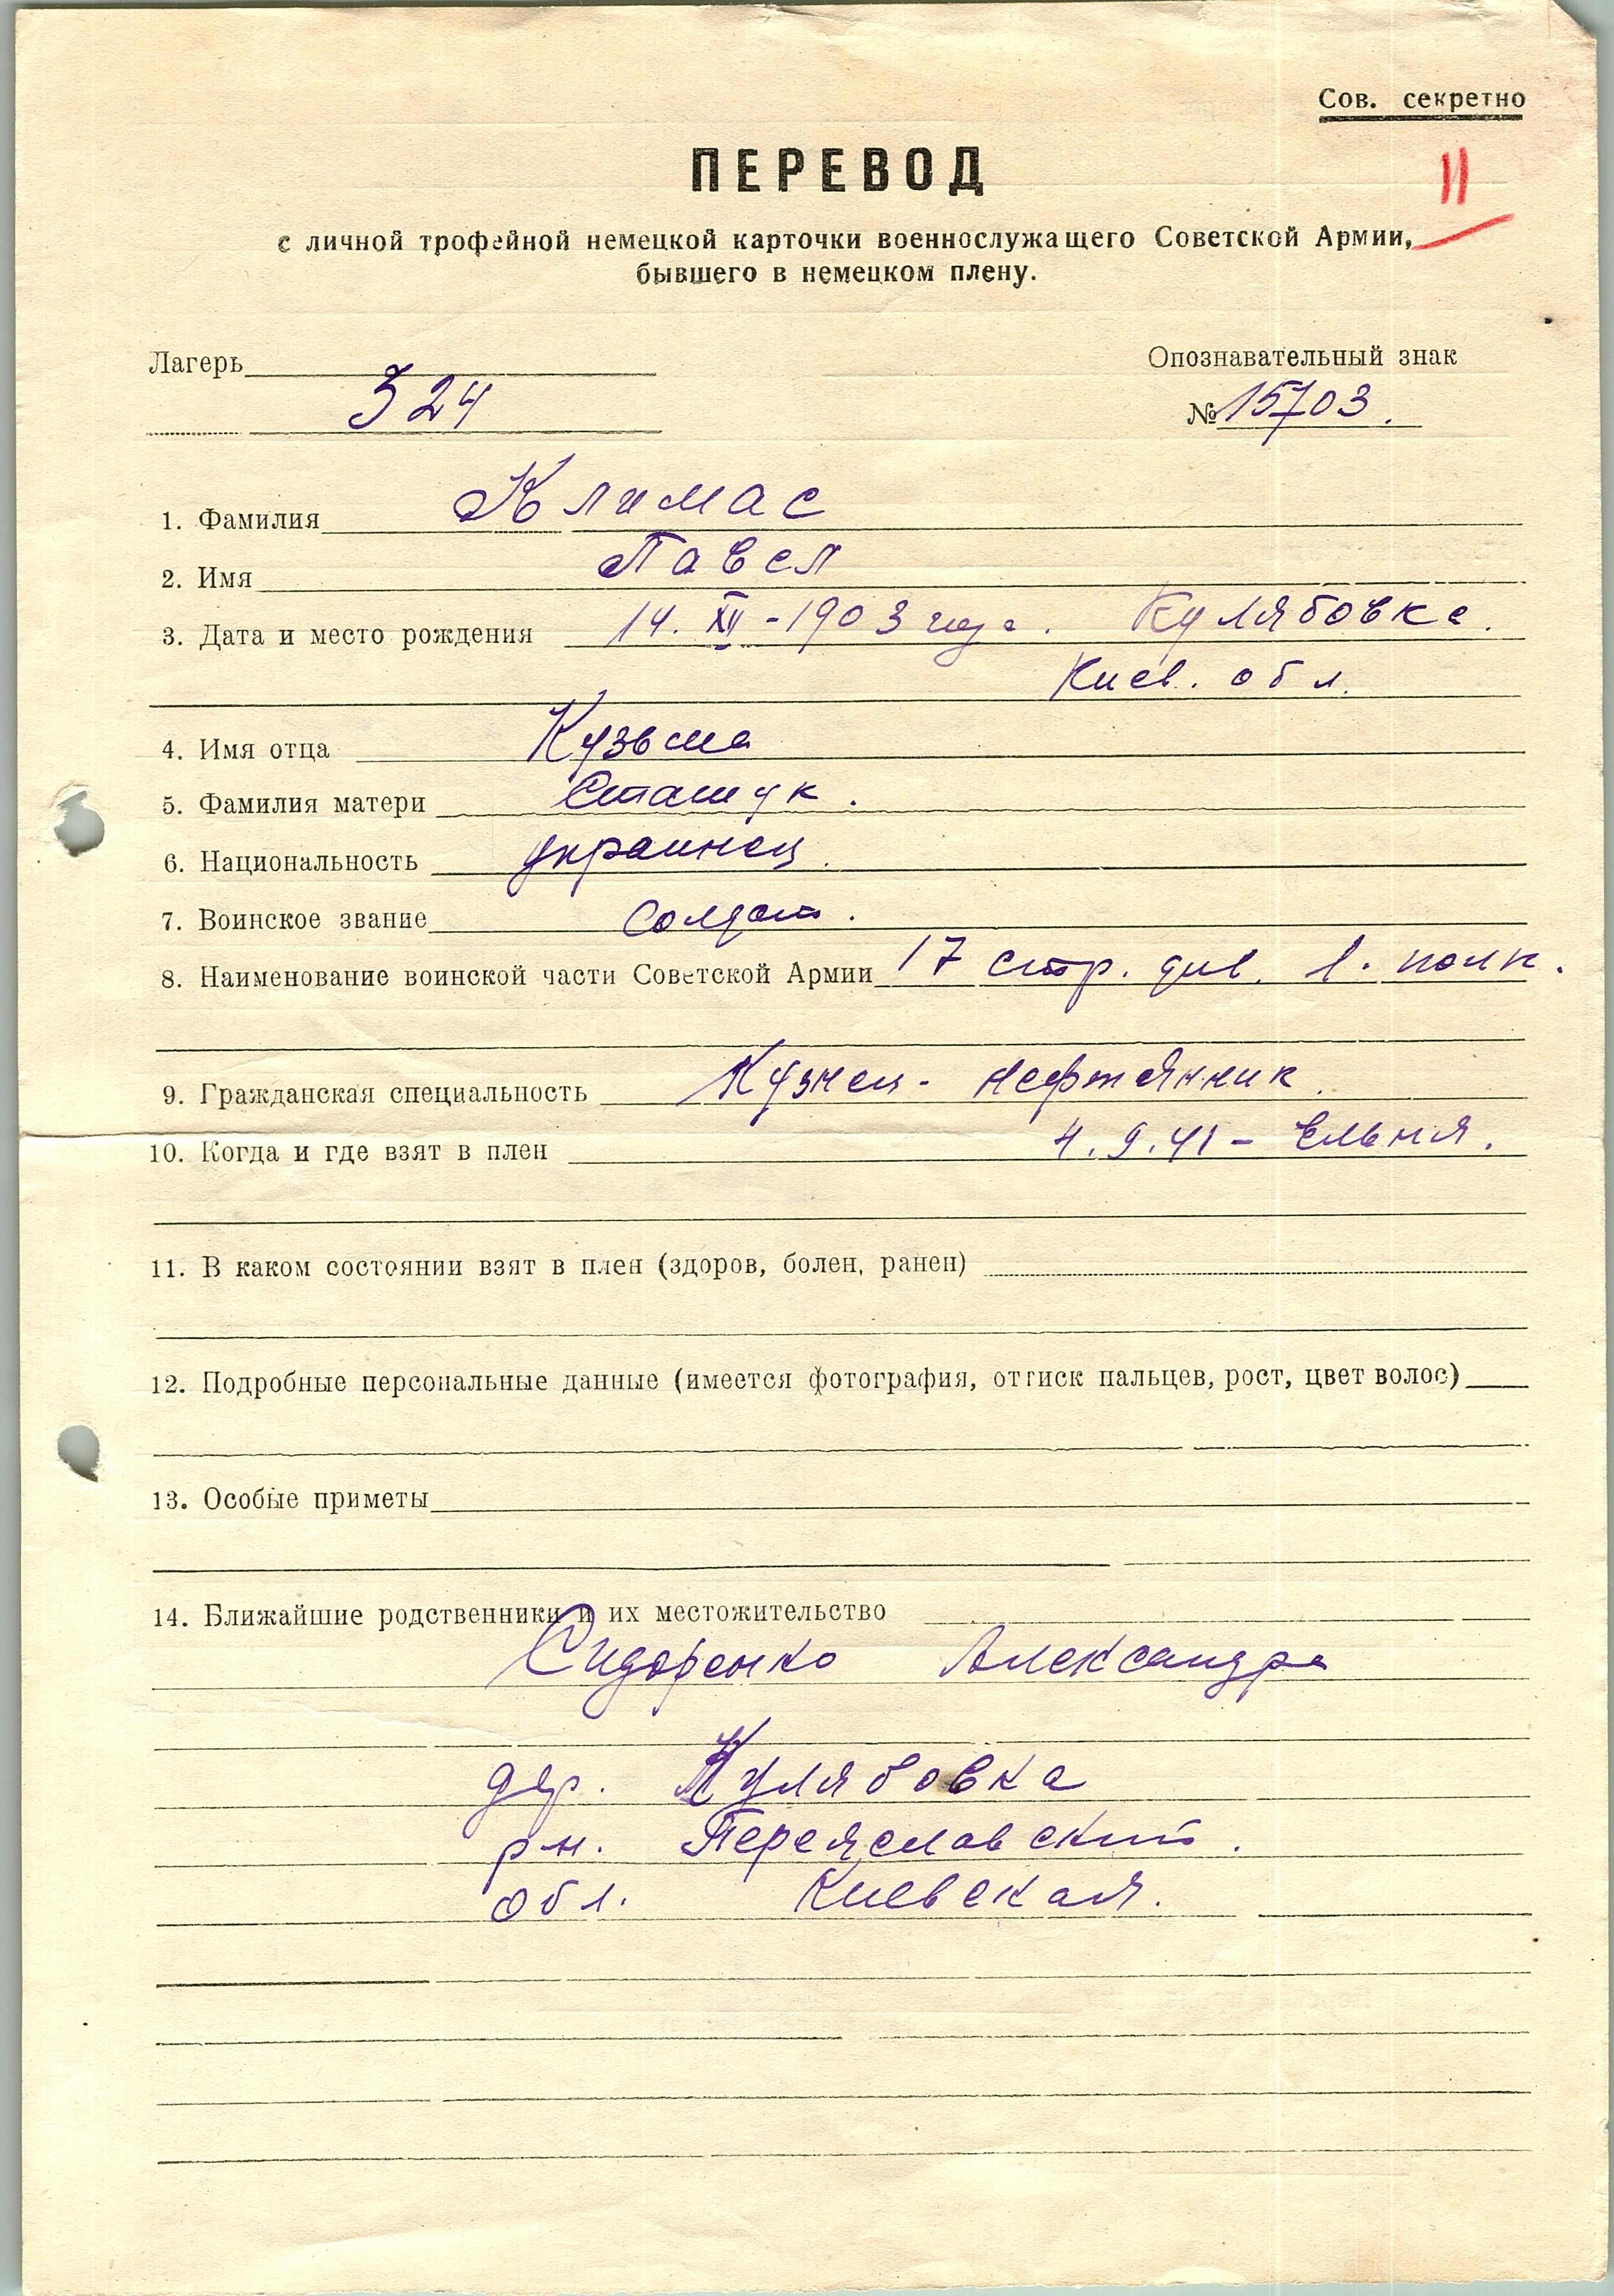 Сов. секретно
11
ПЕРЕВОД
с личной трофейной немецкой карточки военнослужащего Советской Армии,
бывшего в немецком плену.
Лагерь
Опознавательный знак
324
№ 15703.
1. Фамилия Климас
2. Имя Павел
3. Дата и место рождения 14. XII - 1903 года. Кулябовка.
Киев. обл.
4. Имя отца Кузьма
5. Фамилия матери Сташук.
6. Национальность украинец.
7. Воинское звание Солдат.
8. Наименование воинской части Советской Армии 17 стр. див. 1. полк.
9. Гражданская специальность Кузнец - нефтянник.
10. Когда и где взят в плен 4.9.41 - Ельня.
11. В каком состоянии взят в плен (здоров, болен, ранен)
12. Подробные персональные данные (имеется фотография, оттиск пальцев, рост, цвет волос)
13. Особые приметы
14. Ближайшие родственники и их местожительство
Сидоренко Александра
дер. Кулябовка
р-н. Переяславский.
обл. Киевская.